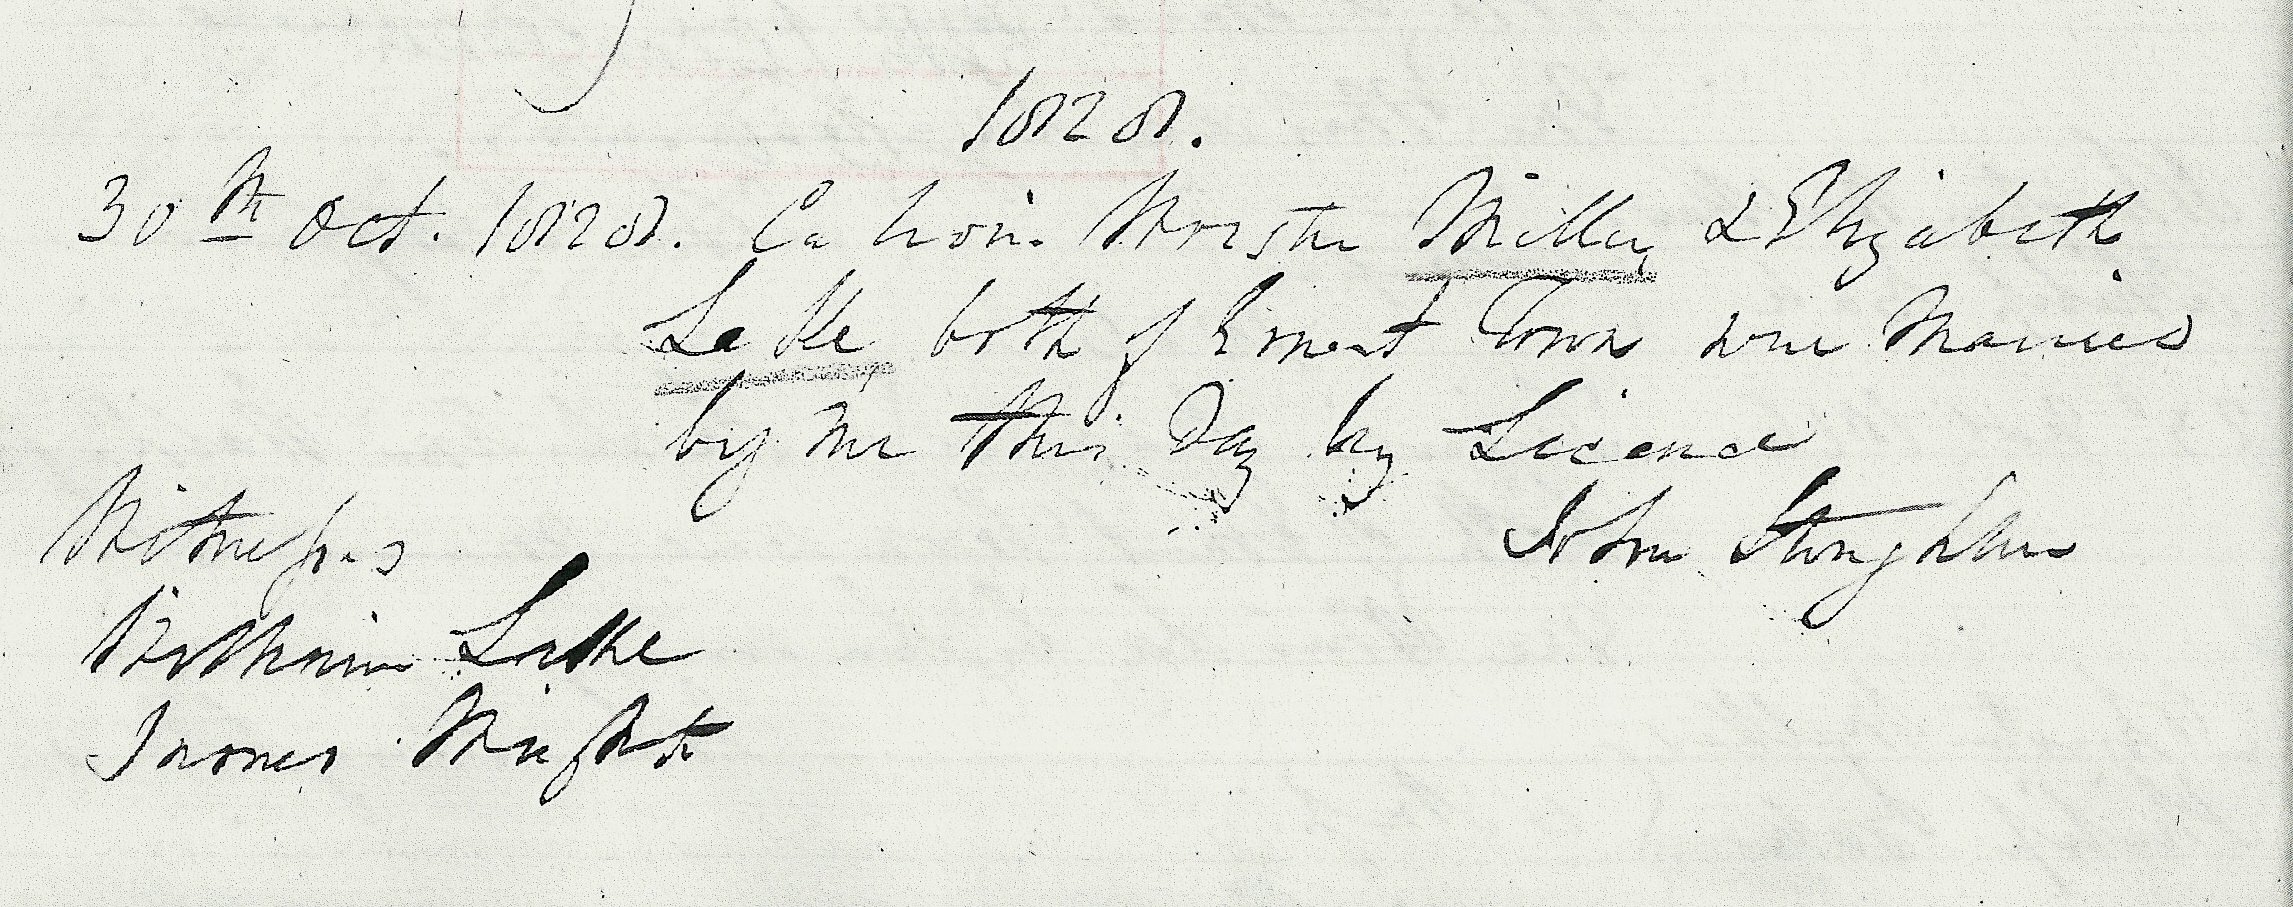 1828.
30th Oct. 1828. Calvin Wooster Miller & Elizabeth
Lake both of Ernest Town were Married
by me this Day by Licence
John Stoughton
Witnesses
Lake
James Wright